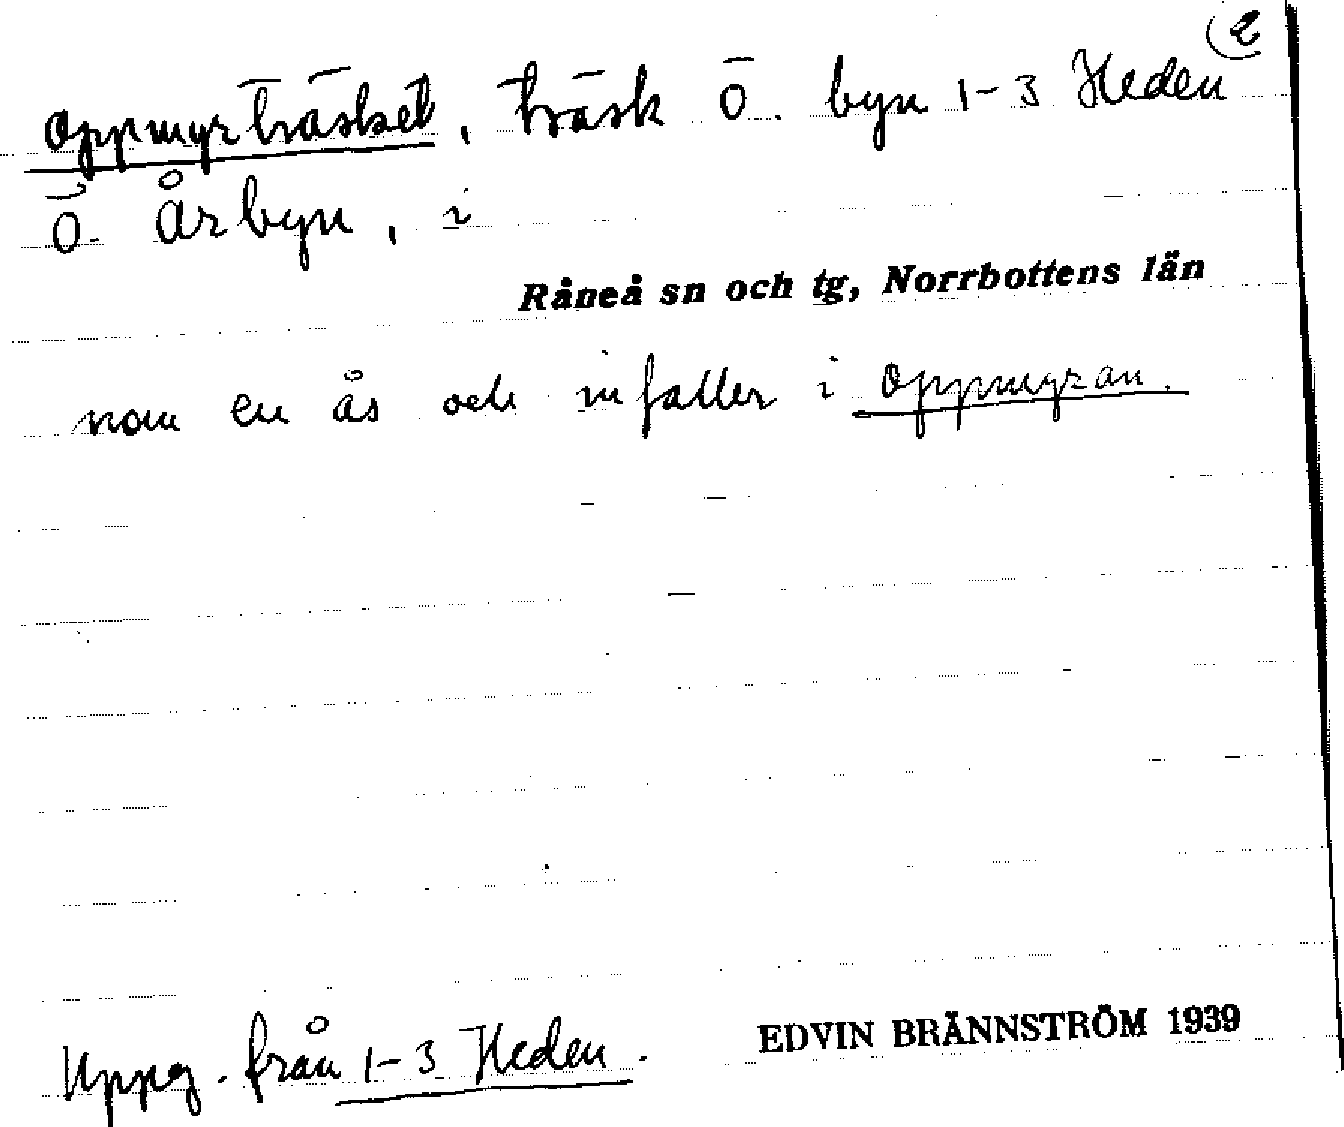 2
Oppmyrträsket, träsk Ö. byn 1-3 Heden
Ö. Årbyn, i
Råneå sn och tg, Norrbottens län
nom en ås och infaller i Oppmyran.
Uppg. från 1-3 Heden.
EDVIN BRÄNNSTRÖM 1939